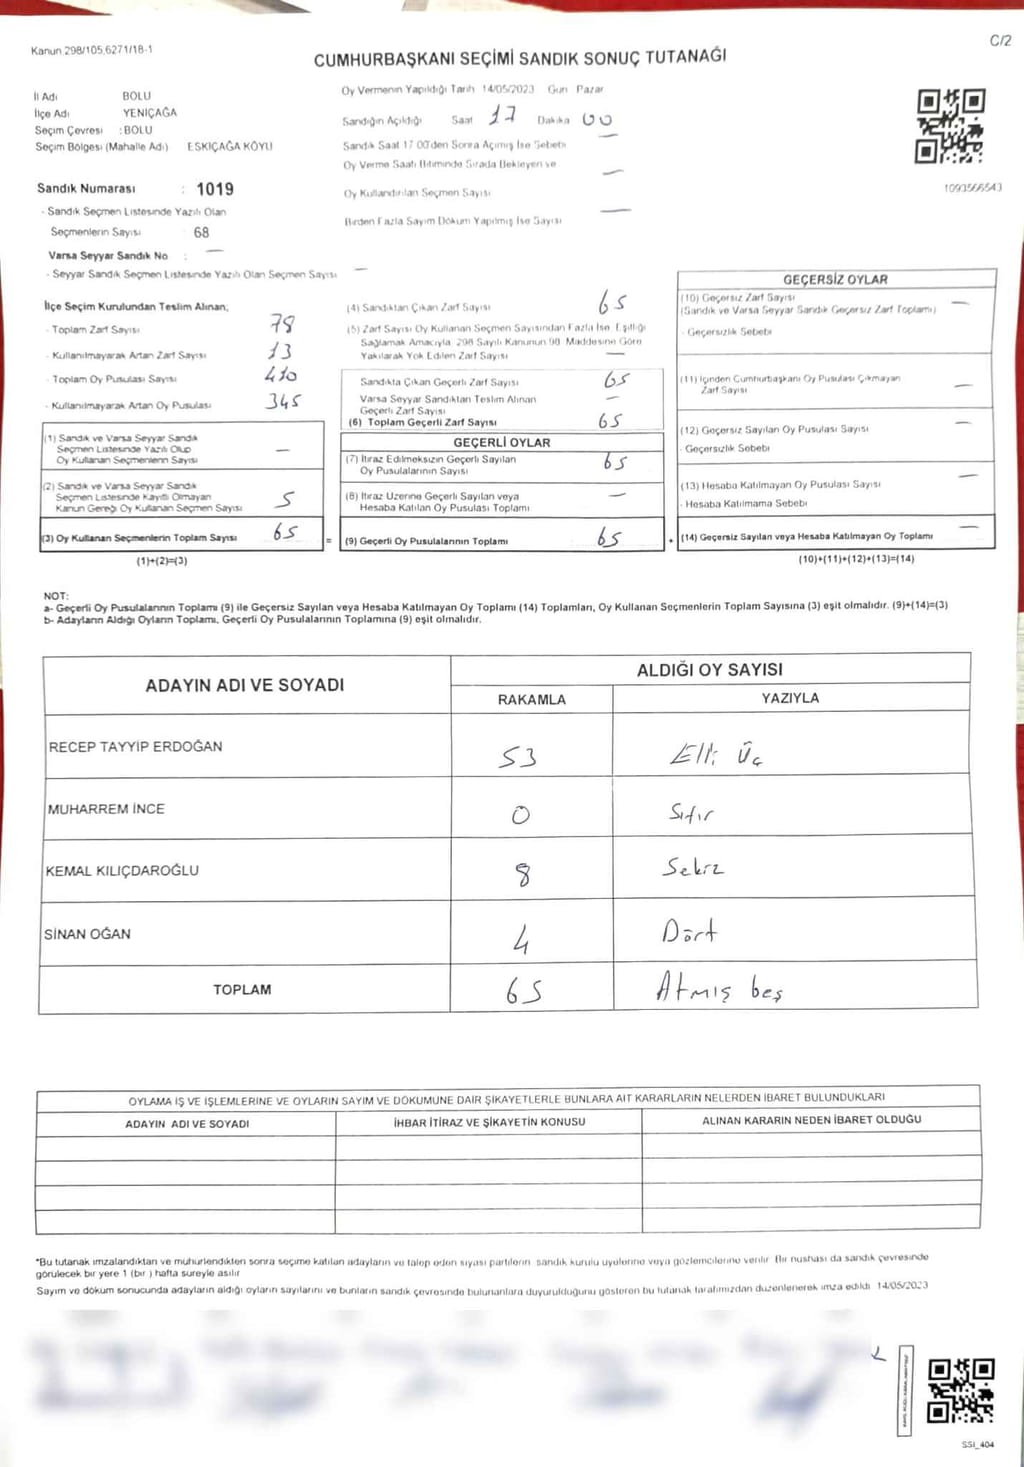 Kanun 298/105,6271/18-1
C/2
CUMHURBAŞKANI SEÇİMİ SANDIK SONUÇ TUTANAĞI
İl Adı BOLU
İlçe Adı YENİÇAĞA
Seçim Çevresi : BOLU
Seçim Bölgesi (Mahalle Adı) ESKİÇAĞA KÖYÜ
Oy Vermenin Yapıldığı Tarih 14/05/2023 Gün Pazar
Sandığın Açıldığı Saat 17 Dakika 00
Sandık Saat 17 00'den Sonra Açılmış İse Sebebi —
Oy Verme Saati Bitiminde Sırada Bekleyen ve
Oy Kullandırılan Seçmen Sayısı —
Birden Fazla Sayım Döküm Yapılmış İse Sayısı —
1093566543
Sandık Numarası : 1019
- Sandık Seçmen Listesinde Yazılı Olan
Seçmenlerin Sayısı : 68
Varsa Seyyar Sandık No : —
- Seyyar Sandık Seçmen Listesinde Yazılı Olan Seçmen Sayısı —
İlçe Seçim Kurulundan Teslim Alınan;
- Toplam Zarf Sayısı 78
- Kullanılmayarak Artan Zarf Sayısı 13
- Toplam Oy Pusulası Sayısı 410
- Kullanılmayarak Artan Oy Pusulası 345
(1) Sandık ve Varsa Seyyar Sandık
Seçmen Listesinde Yazılı Olup
Oy Kullanan Seçmenlerin Sayısı —
(2) Sandık ve Varsa Seyyar Sandık
Seçmen Listesinde Kayıtlı Olmayan
Kanun Gereği Oy Kullanan Seçmen Sayısı 5
(3) Oy Kullanan Seçmenlerin Toplam Sayısı 65
(1)+(2)=(3)
(4) Sandıktan Çıkan Zarf Sayısı 65
(5) Zarf Sayısı Oy Kullanan Seçmen Sayısından Fazla İse, Eşitliği
Sağlamak Amacıyla 298 Sayılı Kanunun 98 Maddesine Göre
Yakılarak Yok Edilen Zarf Sayısı —
Sandıkta Çıkan Geçerli Zarf Sayısı 65
Varsa Seyyar Sandıktan Teslim Alınan
Geçerli Zarf Sayısı —
(6) Toplam Geçerli Zarf Sayısı 65
GEÇERLİ OYLAR
(7) İtiraz Edilmeksizin Geçerli Sayılan
Oy Pusulalarının Sayısı 65
(8) İtiraz Üzerine Geçerli Sayılan veya
Hesaba Katılan Oy Pusulası Toplamı —
= (9) Geçerli Oy Pusulalarının Toplamı 65
GEÇERSİZ OYLAR
(10) Geçersiz Zarf Sayısı
(Sandık ve Varsa Seyyar Sandık Geçersiz Zarf Toplamı) —
- Geçersizlik Sebebi
(11) İçinden Cumhurbaşkanı Oy Pusulası Çıkmayan
Zarf Sayısı —
(12) Geçersiz Sayılan Oy Pusulası Sayısı —
- Geçersizlik Sebebi
(13) Hesaba Katılmayan Oy Pusulası Sayısı —
- Hesaba Katılmama Sebebi
+ (14) Geçersiz Sayılan veya Hesaba Katılmayan Oy Toplamı —
(10)+(11)+(12)+(13)=(14)
NOT:
a- Geçerli Oy Pusulalarının Toplamı (9) ile Geçersiz Sayılan veya Hesaba Katılmayan Oy Toplamı (14) Toplamları, Oy Kullanan Seçmenlerin Toplam Sayısına (3) eşit olmalıdır. (9)+(14)=(3)
b- Adayların Aldığı Oyların Toplamı, Geçerli Oy Pusulalarının Toplamına (9) eşit olmalıdır.
ADAYIN ADI VE SOYADI
ALDIĞI OY SAYISI
RAKAMLA YAZIYLA
RECEP TAYYİP ERDOĞAN 53 Elli Üç
MUHARREM İNCE 0 Sıfır
KEMAL KILIÇDAROĞLU 8 Sekiz
SİNAN OĞAN 4 Dört
TOPLAM 65 Atmış beş
OYLAMA İŞ VE İŞLEMLERİNE VE OYLARIN SAYIM VE DÖKÜMÜNE DAİR ŞİKAYETLERLE BUNLARA AİT KARARLARIN NELERDEN İBARET BULUNDUKLARI
ADAYIN ADI VE SOYADI
İHBAR İTİRAZ VE ŞİKAYETİN KONUSU
ALINAN KARARIN NEDEN İBARET OLDUĞU
*Bu tutanak imzalandıktan ve mühürlendikten sonra seçime katılan adayların ve talep eden siyasi partilerin sandık kurulu üyelerine veya gözlemcilerine verilir. Bir nüshası da sandık çevresinde
görülecek bir yere 1 (bir ) hafta süreyle asılır
Sayım ve döküm sonucunda adayların aldığı oyların sayılarını ve bunların sandık çevresinde bulunanlara duyurulduğunu gösteren bu tutanak tarafımızdan düzenlenerek imza edildi 14/05/2023
SSI_404